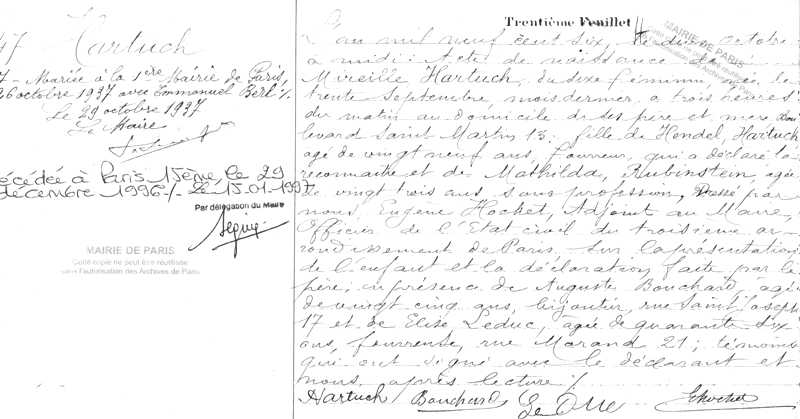 47 Hartuch
7 - Mariée à la 1ère Mairie de Paris,
26 octobre 1937 avec Emmanuel Berl ./.
Le 29 octobre 1937
Le Maire
décédée à Paris 15ème le 29
décembre 1996 ./. le 15.01.1997.
Par délégation du Maire
MAIRIE DE PARIS
Cette copie ne peut être réutilisée
sans l'autorisation des Archives de Paris
Trentième Feuillet
MAIRIE DE PARIS
L'an mil neuf cent six, le dix octobre
à midi : Acte de naissance de
Mireille Hartuch, du sexe féminin, née le
trente Septembre, mois dernier à trois heures
du matin au domicile de ses père et mère bou
levard Saint Martin 13. fille de Hendel, Hartuch
agé de vingt neuf ans, fourreur, qui a déclaré la
reconnaitre et de Mathilda, Rubinstein, agée
de vingt trois ans, sans profession, Dressé par
nous, Eugène Hochet, Adjoint au Maire,
Officier de l'Etat civil du troisième ar-
rondissement de Paris, sur la présentation
de l'enfant et la déclaration faite par le
père ; en présence de Auguste Bouchard, agé
de vingt cinq ans, bijoutier, rue Saint Joseph
17 et de Elise Leduc, agée de quarante six
ans, fourreuse, rue Morand 21 ; témoins
qui ont signé avec le déclarant et
nous, après lecture ./.
Hartuch Bouchard